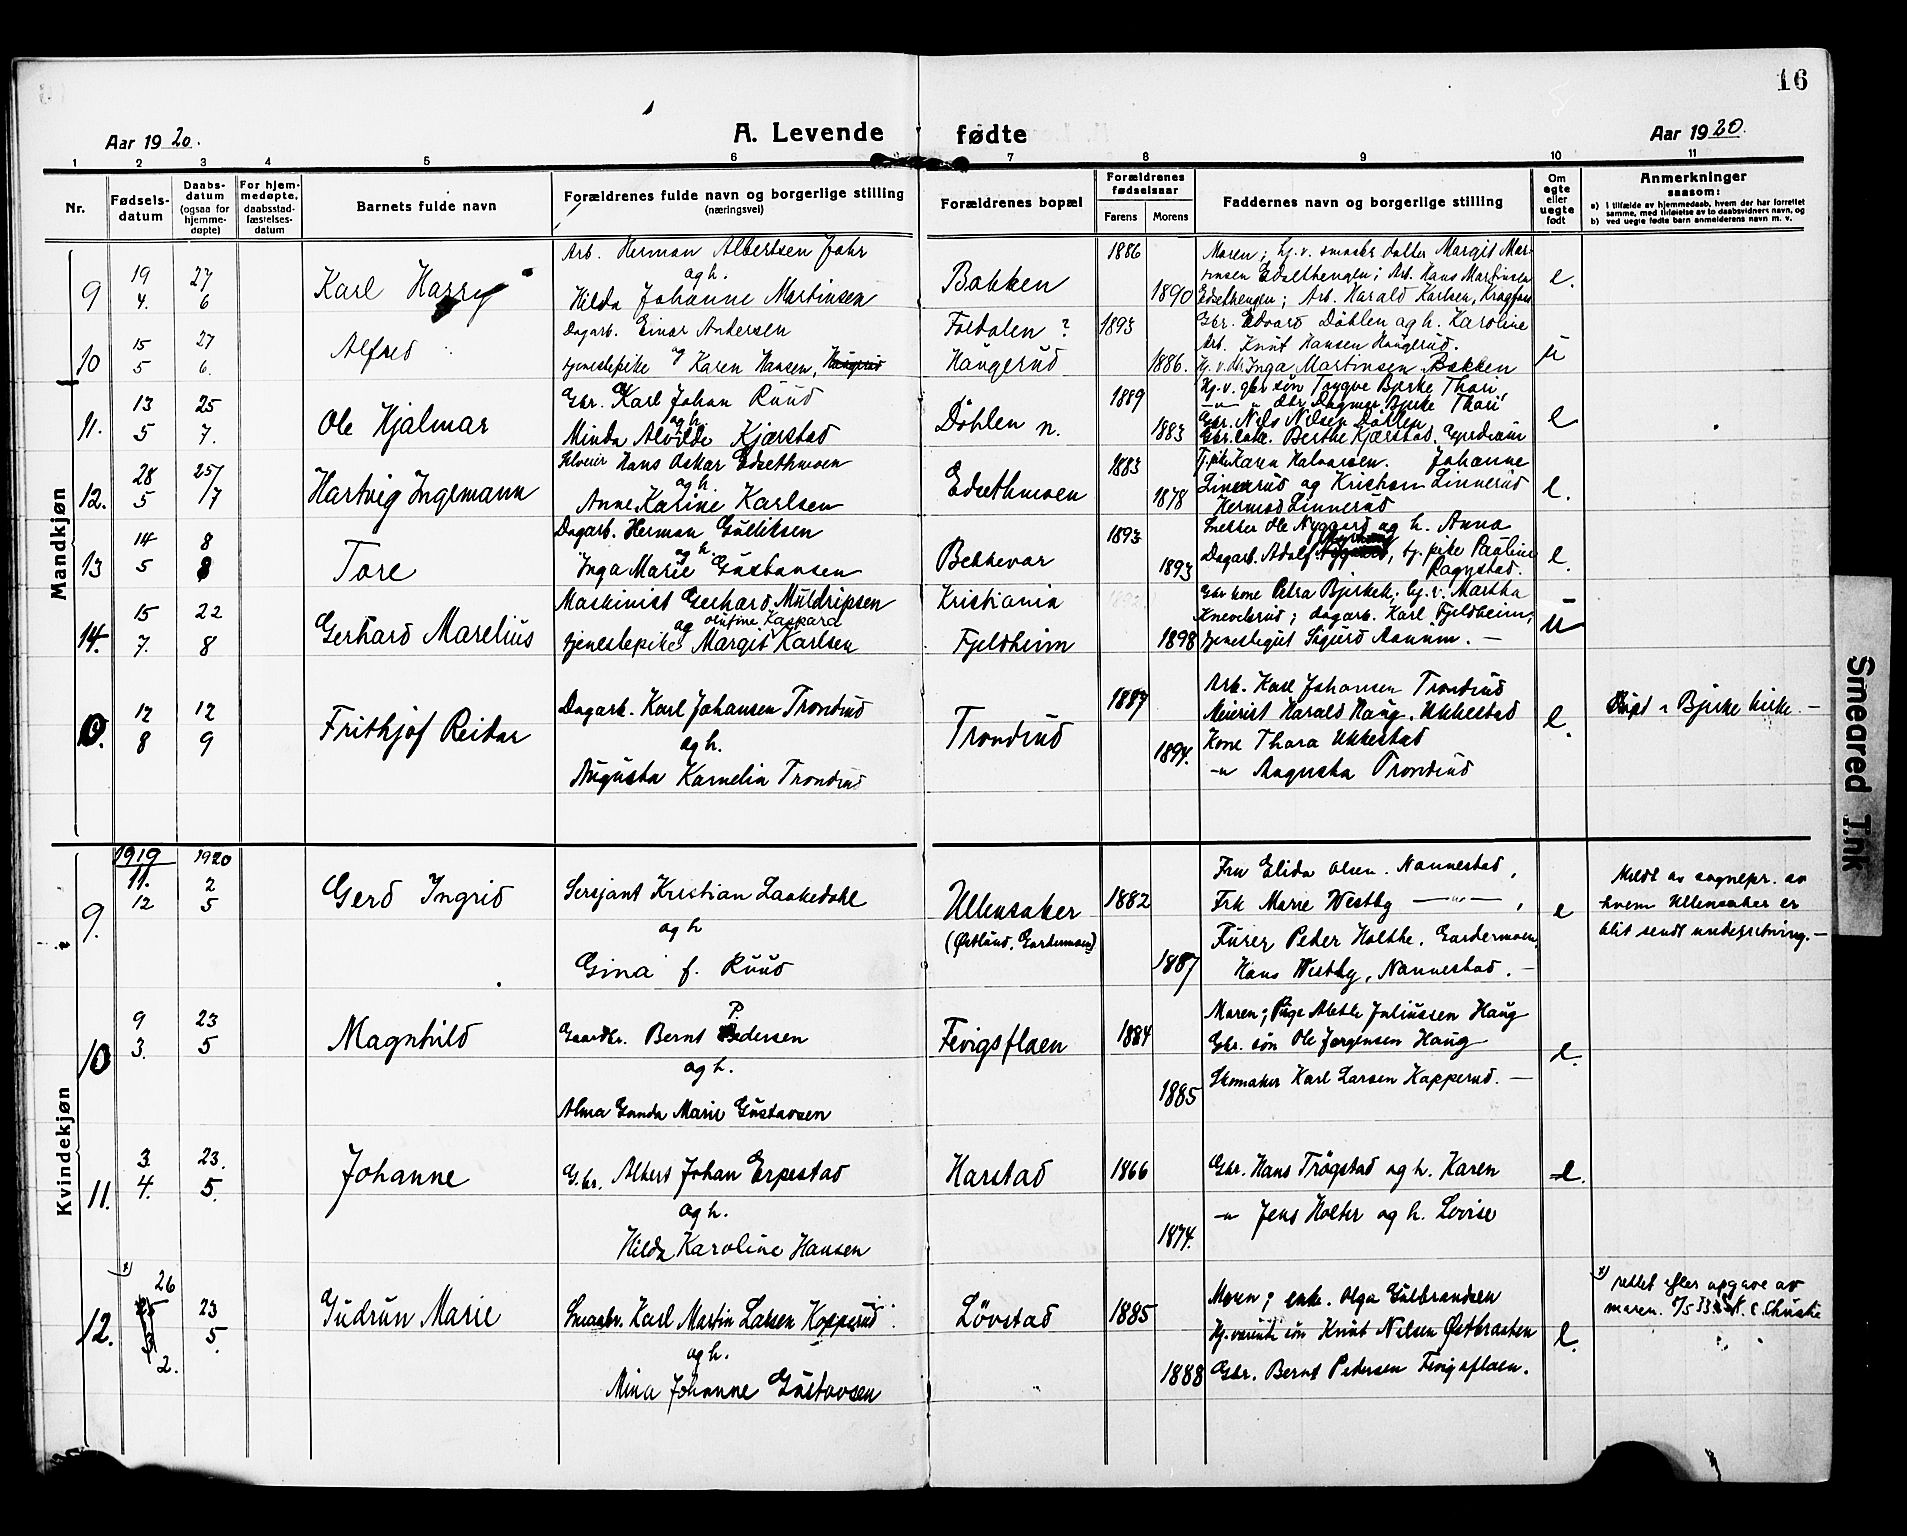 16
Aar 1920.
A. Levende fødte
Aar 1920.
1 2 3 4 5 6 7 8 9 10 11
Nr.
Fødsels-
datum
Daabs-
datum
(ogsaa for
hjemme-
døpte)
For hjem-
medøpte,
daabsstad-
fæstelses-
datum
Barnets fulde navn
Forældrenes fulde navn og borgerlige stilling
(næringsvei)
Forældrenes bopæl
Forældrenes
fødselsaar
Farens Morens
Faddernes navn og borgerlige stilling
Om
egte
eller
uegte
født
Anmerkninger
saasom:
a) i tilfælde av hjemmedaab, hvem der har forrettet
samme, med tilføielse av to daabsvidners navn, og
b) ved uegte fødte barn anmelderens navn m. v.
Mandkjøn
9
19
4.
27
6
Karl Harry
Arb. Herman Albertsen Johr
og h.
Hilda Johanne Martinsen
Bakken
1886
1890
Moren; hj. v. smaabr datter Margit Mar-
tinsen Edsethengen; Arb. Hans Martinsen
Edsethengen; Arb. Harald Karlsen, Kragfoss
e.
10
15
5
27
6.
Alfred
Dagarb. Einar Andersen
tjenestepike og Karen Hansen, Haugerud
Foldalen ?
Haugerud
1893
1886.
Gbr. Edvard Döhlen og h. Karoline
Arb. Knut Hansen Haugerud.
hj. v. dtr Inga Martinsen Bakken
u
11.
13
5
25
7.
Ole Hjalmar
Gbr. Karl Johan Ruud
og h.
Minda Alvilde Kjærstad
Döhlen n.
1889
1883
Hj. v. gbr søn Trygve Bjerke Thori,
— " — dtr. Dagmar Bjerke Thori
Gbr. Nils Nilsen Döhlen
Gbr. datt. Berthe Kjærstad.
e
12.
28
5
25/
/7
Hartvig Ingemann
Selveier Hans Oskar Edsethmoen
og h.
Anne Karine Karlsen
Edsethmoen
1883
1878
Tj. pike Karen Halvorsen. Johanne
Linnerud og Kristian Linnerud
Hermod Linnerud
e.
13
14
5
8
8
Tore
Dagarb. Herman Gulliksen
og h.
Inga Marie Gustavsen
Bekkevar
1893
1893
Snekker Ole Nygaard og h. Anna
Dagarb. Adolf Nygaard, tj. pike Pauline
Ragnstad.
e.
14.
15
7.
22
8
Gerhard Marelius
Maskinist Gerhard Muldripsen
og Olufine Kaspara
tjenestepike Margit Karlsen
Kristiania
Fjeldheim
1892.
1898
Gbr kone Petra Bjerkeh. hj. v. Martha
Kneverud; dagarb. Karl Fjeldheim;
tjenestegut Sigurd Aanum. —
u
12
8
12
9
Frithjof Reidar
Dagarb. Karl Johansen Trondrud
og h.
Augusta Kornelia Trondrud
Trondrud
1887
1894.
Arb. Karl Johansen Trondrud
Meierist Harald Haug, Ukkestad
Kone Thora Ukkestad
—"— Augusta Trondrud
e.
Døpt i Bjerke kirke. —
Kvindekjøn
1919
1920
9.
11.
12
2
5
Gerd Ingrid
Sersjant Kristian Laakedahl
og h
Gina f. Ruud
Ullensaker
(Østlund, Gardermoen)
1882
1887
Fru Elida Olsen. Nannestad,
Frk Marie Westby — " —,
Furer Peder Holthe, Gardermoen,
Hans Westby, Nannestad. —
e
Meldt av sognepr. av
hvem Ullensaker er
blit sendt underretning. —
10
9
3.
23
5
Magnhild
Gaardbr. Bernt Pedersen
og h.
Alma Gunda Marie Gustavsen
Fevigsflaen
1884
1885
Moren; Pige Alethe Juliussen Haug
Gbr. søn Ole Jørgensen Haug
Skomaker Karl Larsen Kopperud. —
e.
11.
3
4.
23.
5.
Johanne
G.br. Albert Johan Erpestad
og h.
Hilda Karoline Hansen
Harstad
1866
1874.
Gbr. Hans Trøgstad og h. Karen
—"— Jens Holter og h. Lovise
e.
12.
x)
26
25
3
2.
23
5.
Gudrun Marie
Smaabr. Karl Martin Larsen Kopperud
og h.
Mina Johanne Gustavsen
Lövstad
1885
1888
Moren; enke. Olga Gulbrandsen
Hj. værende søn Knut Nilsen Østbraaten
Gbr. Bernt Pedersen Fevigsflaen.
e.
x) rettet efter opgave av
moren. K. C. Christie
Smeared Ink